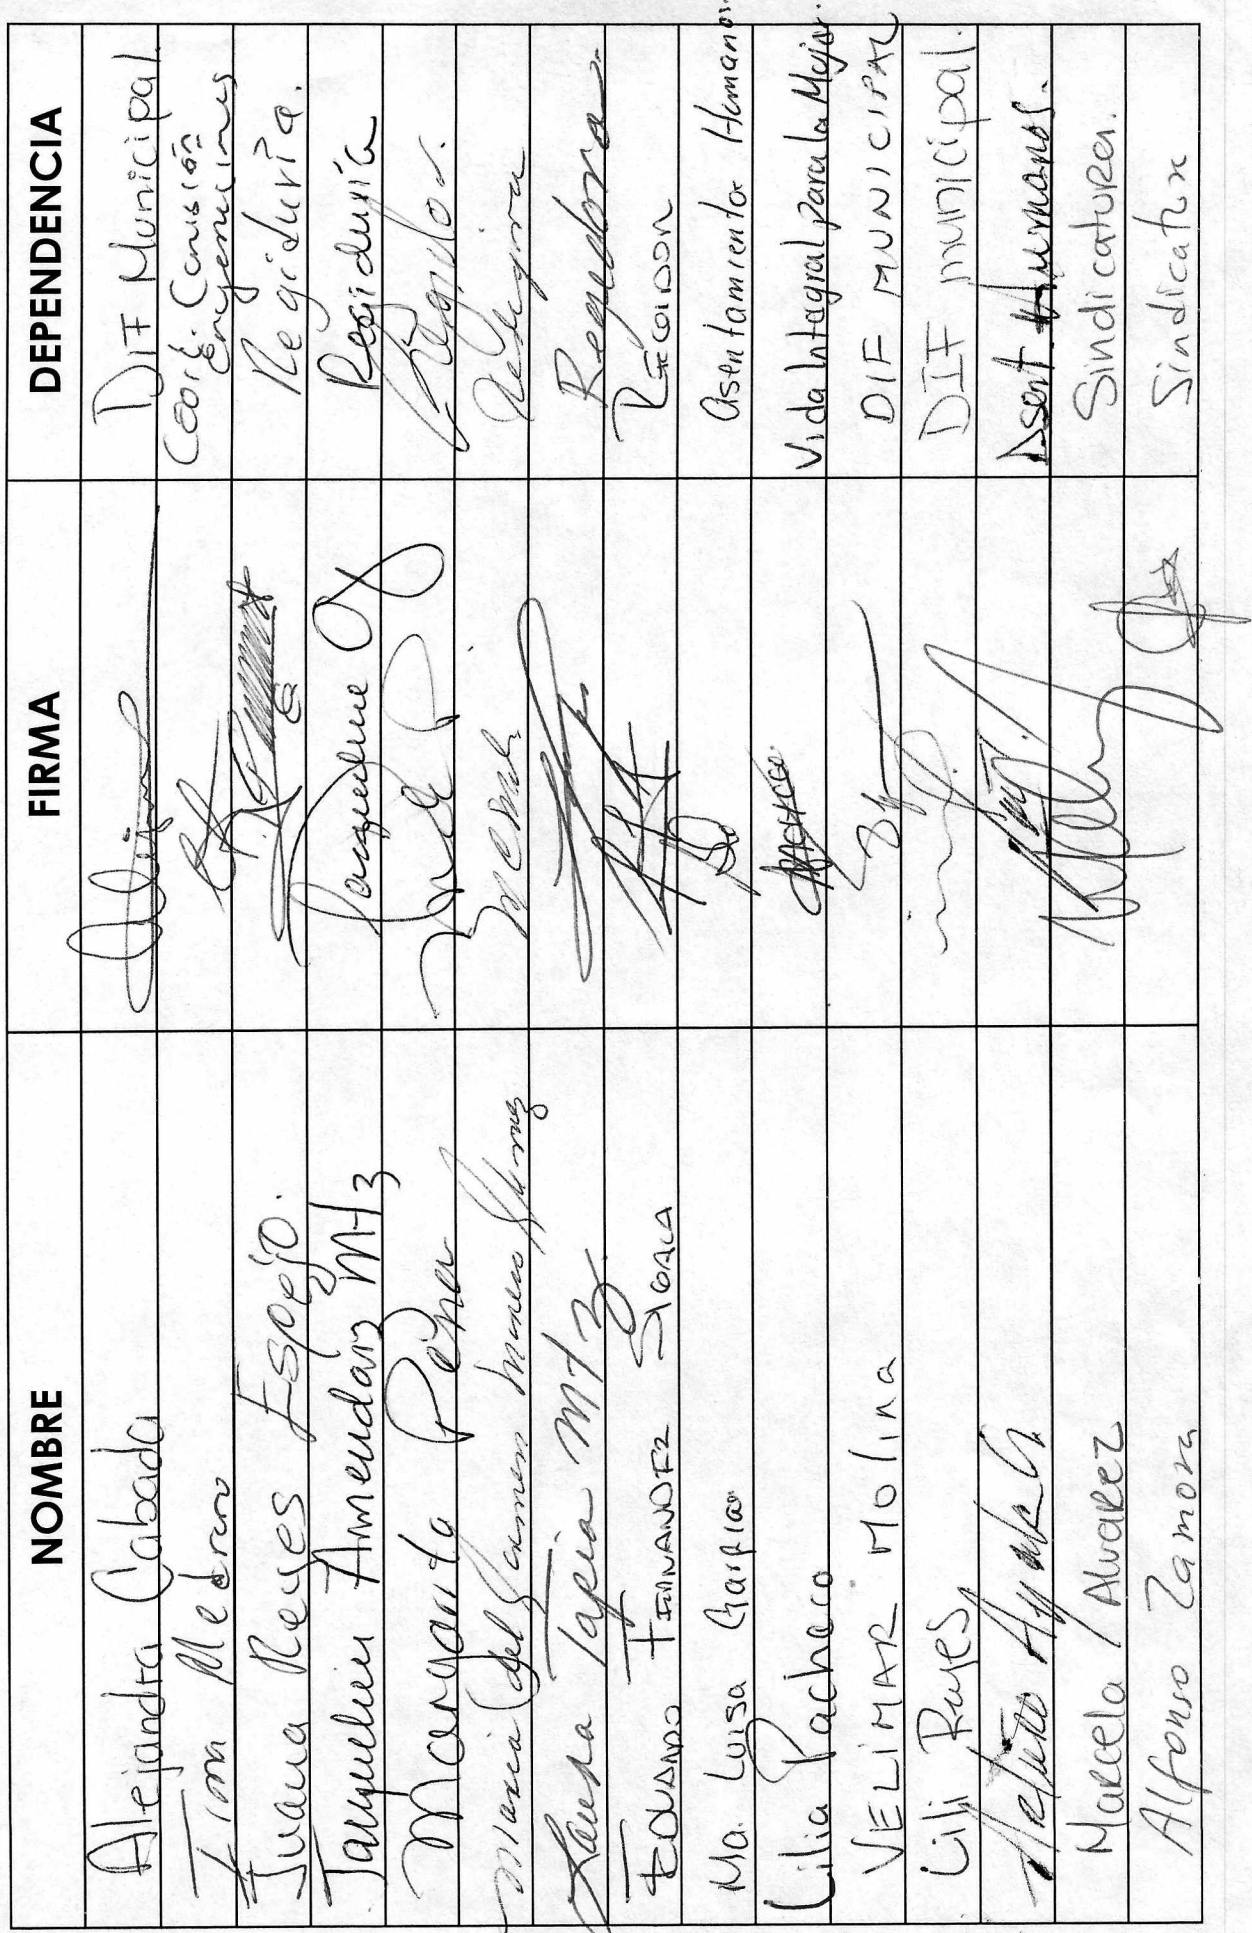 NOMBRE FIRMA DEPENDENCIA
Alejandra Cabada DIF Municipal
Medrano Coord. Comisión
Juana Reyes Espejo. Regiduría.
Jaquelin Armendáriz Mtz Jaqueline Regiduría
Margarita Peña Regidor.
Maria del Carmen
Tapia Mtz Regidora
EDUARDO FERNANDEZ SIGALA REGIDOR
Ma. Luisa Garpio Asentamientos Humanos
Lilia Pacheco Vida Integral para la Mujer.
VELIMAR MOlina DIF MUNICIPAL
Lili Reyes DIF municipal.
Arturo Ayala Asent. Humanos.
Marcela Alvarez Sindicatura.
Alfonso Zamora Sindicatura